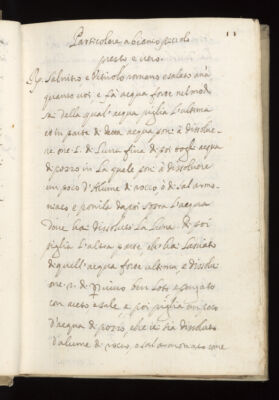 11
Particolare, a bianco piccolo
presto e vero.
Salnitro e Vitriolo romano e salato anà
quanto voi, e fà acqua forte nel modo
sa: della qual' acqua piglia l'ultima
et in parte di detta acqua poni à dissolue-
re on: 1. di Luna fina di poi togli acqua
di pozzo in la quale poni à dissoluere
un poco d'Alume di rocco ò di sal armo-
niaco e ponila da poi sopra l'acqua
doue hai dissoluto La Luna. Di poi
piglia l'altra parte, che hai lasciato
di quell'acqua forte ultima, e dissolui
on: 2. di ☿ uiuo ben loto e purgato
con aceto e sale, e poi piglia un poco
d'acqua di pozzo, che ci hà dissoluto
d'alume di rocco, o sal armoniaco come